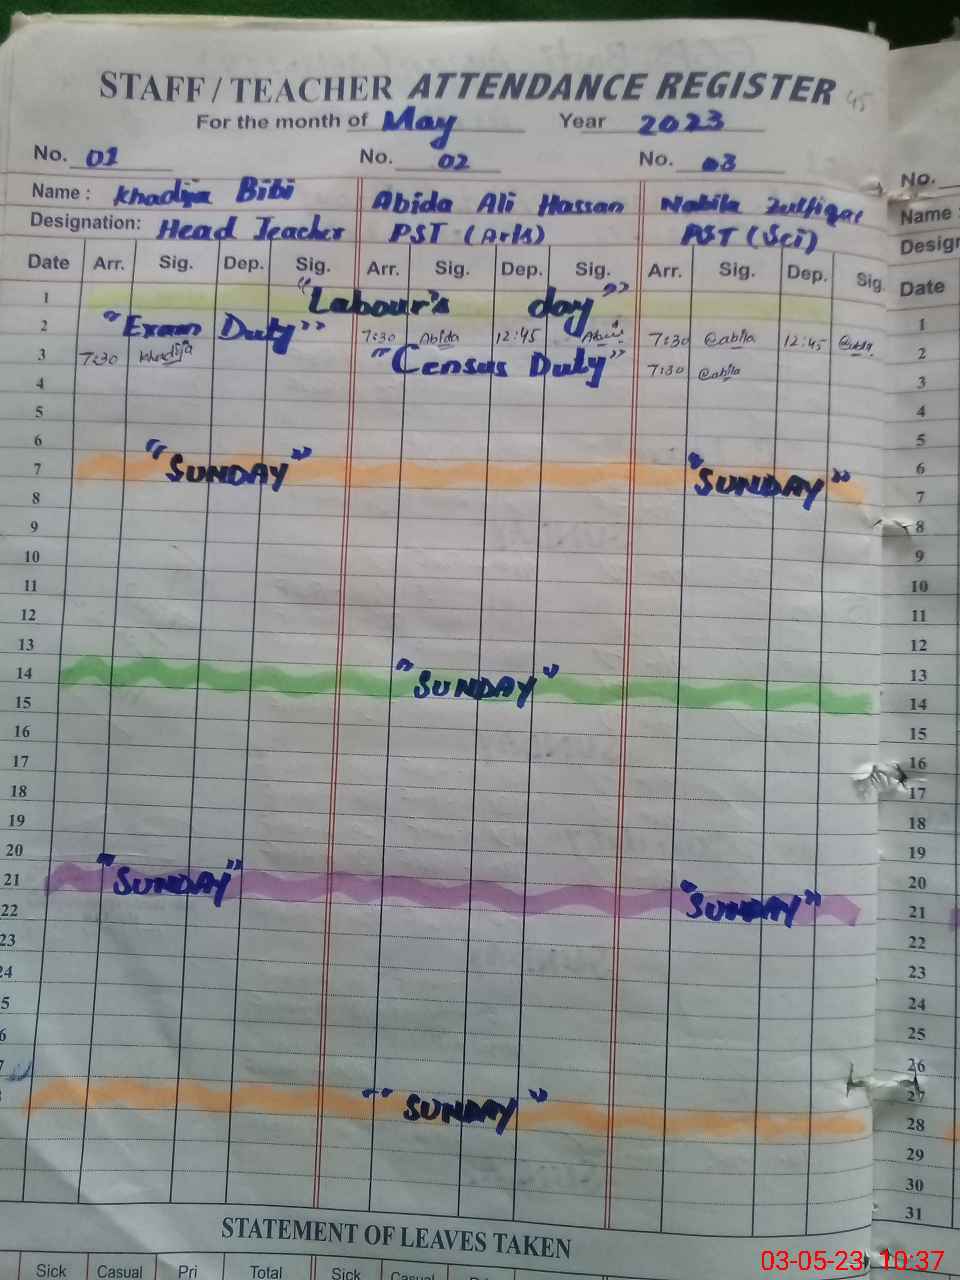 STAFF / TEACHER ATTENDANCE REGISTER 45
For the month of May Year 2023
No. 01 No. 02 No. 03
Name : Khadija Bibi Abida Ali Hassan Nabila Zulfiqar
Designation: Head Teacher PST (Arts) PST (Sci)
Date Arr. Sig. Dep. Sig. Arr. Sig. Dep. Sig. Arr. Sig. Dep. Sig.
1 "Labour's day"
2 "Exam Duty" 7:30 Abida 12:45 7:30 @abila 12:45
3 7:30 Khadija "Census Duty" 7:30 @abila
4
5
6
7 "SUNDAY" "SUNDAY"
8
9
10
11
12
13
14 "SUNDAY"
15
16
17
18
19
20
21 "SUNDAY" "SUNDAY"
22
23
24
5
6
7
"SUNDAY"
STATEMENT OF LEAVES TAKEN
Sick Casual Pri Total Sick Casual
No.
Name :
Design
Date
1
2
3
4
5
6
7
8
9
10
11
12
13
14
15
16
17
18
19
20
21
22
23
24
25
26
27
28
29
30
31
03-05-23 10:37